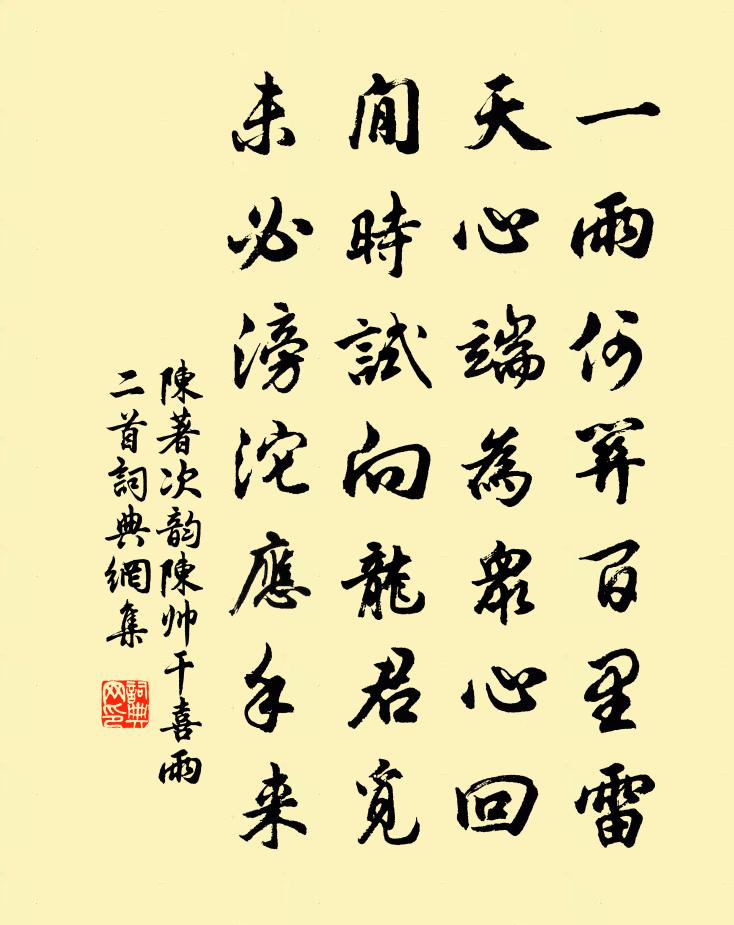 一雨何關百里雷
天心端為眾心回
閒時試向龍君覓
未必滂沱應手来
陳著次韵陳帅干喜雨
二首詞典網集
詞典
网印